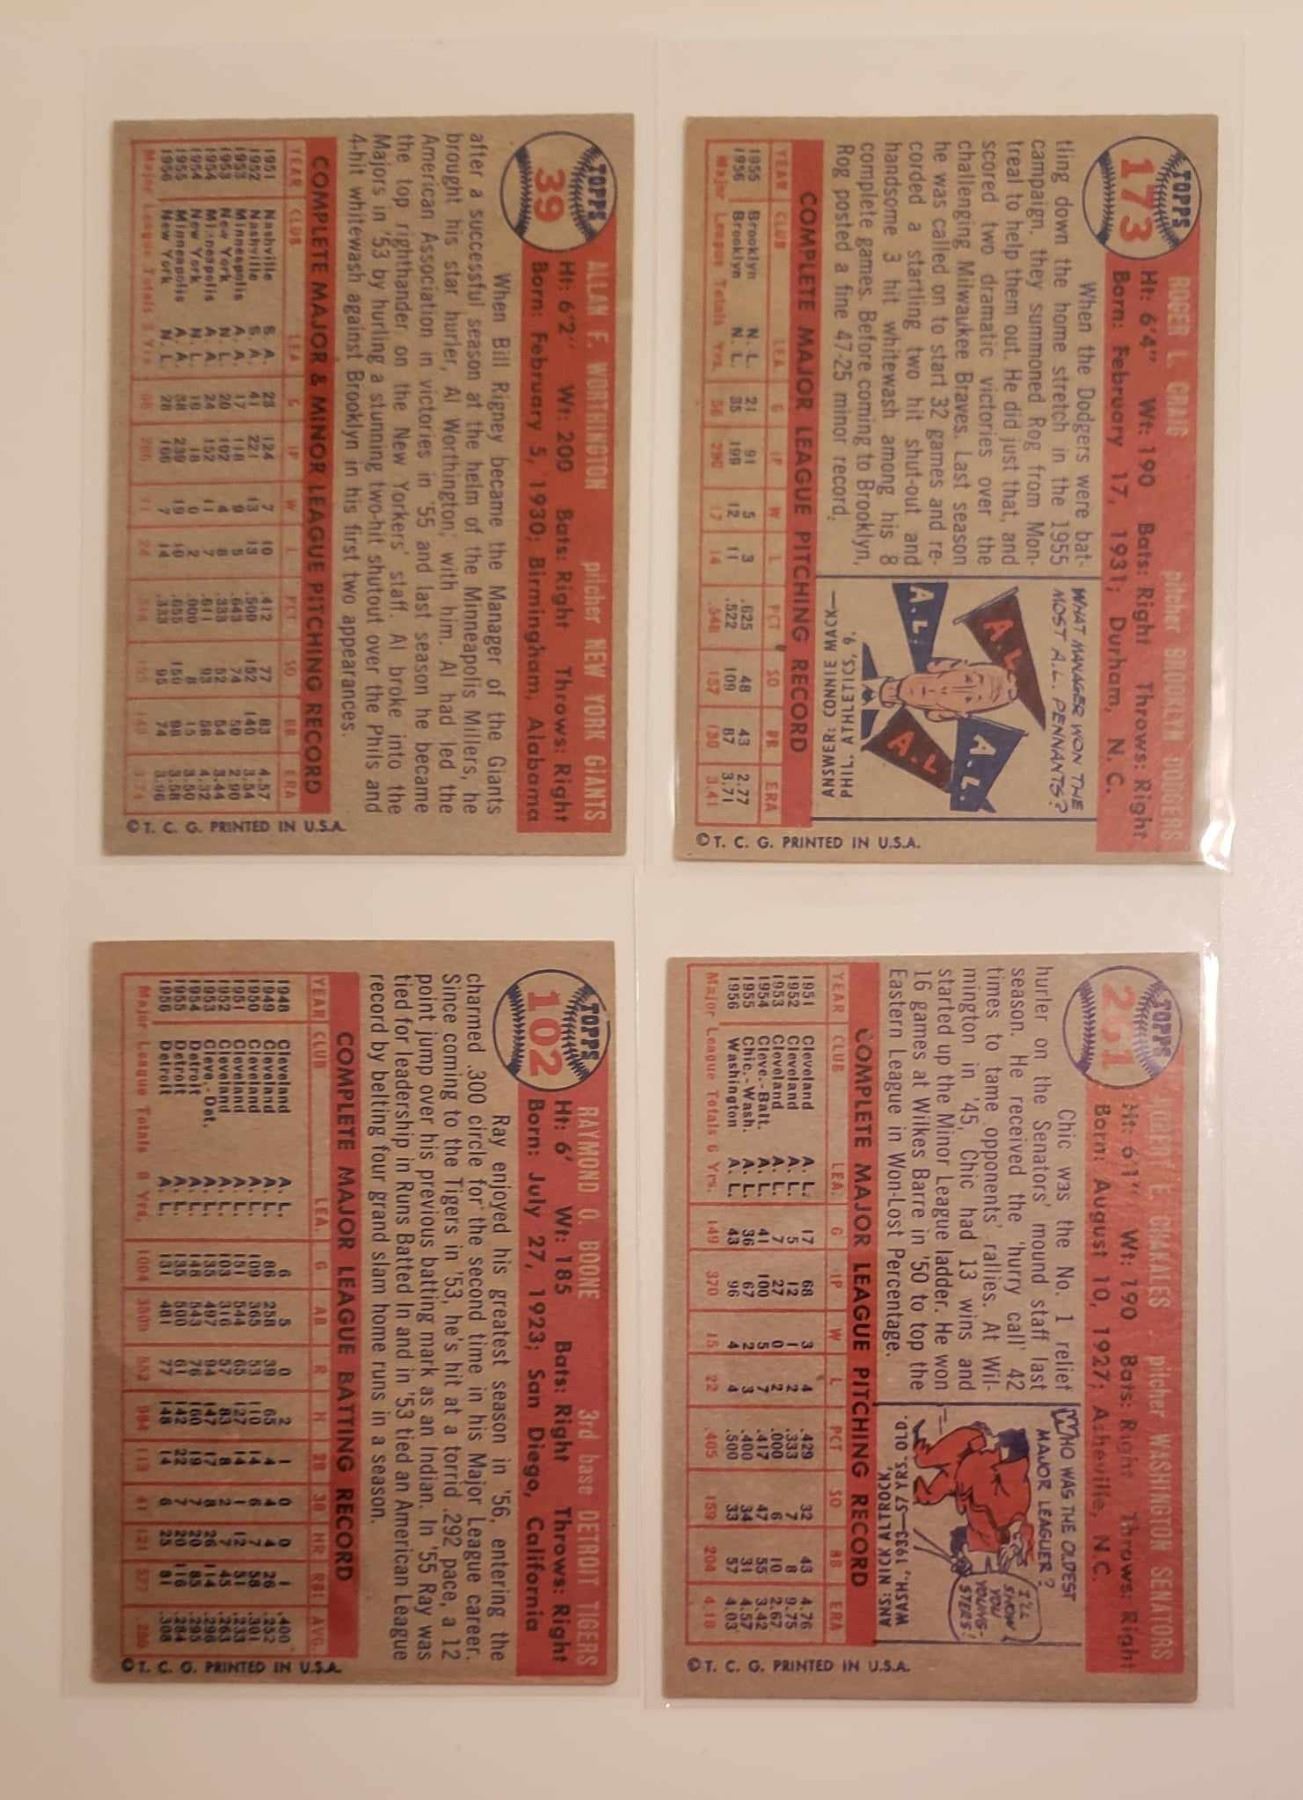 TOPPS
173
ROGER L. CRAIG pitcher BROOKLYN DODGERS
Ht: 6'4" Wt: 190 Bats: Right Throws: Right
Born: February 17, 1931; Durham, N. C.
When the Dodgers were bat-
tling down the home stretch in the 1955
campaign, they summoned Rog from Mon-
treal to help them out. He did just that, and
scored two dramatic victories over the
challenging Milwaukee Braves. Last season
he was called on to start 32 games and re-
corded a startling two hit shut-out and
handsome 3 hit whitewash among his 8
complete games. Before coming to Brooklyn,
Rog posted a fine 47-25 minor record.
WHAT MANAGER WON THE
MOST A.L. PENNANTS?
A.L.
A.L.
A.L.
A.L.
ANSWER: CONNIE MACK—
PHIL. ATHLETICS, 9.
COMPLETE MAJOR LEAGUE PITCHING RECORD
YEAR CLUB LEA G IP W L PCT SO BB ERA
1955 Brooklyn N. L. 21 91 5 3 .625 48 43 2.77
1956 Brooklyn N. L. 35 199 12 11 .522 109 87 3.71
Major League Totals Yrs. 56 290 17 14 .548 157 130 3.41
©T. C. G. PRINTED IN U.S.A.
TOPPS
39
ALLAN F. WORTHINGTON pitcher NEW YORK GIANTS
Ht: 6'2" Wt: 200 Bats: Right Throws: Right
Born: February 5, 1930; Birmingham, Alabama
When Bill Rigney became the Manager of the Giants
after a successful season at the helm of the Minneapolis Millers, he
brought his star hurler, Al Worthington, with him. Al had led the
American Association in victories in '55 and last season he became
the top righthander on the New Yorkers' staff. Al broke into the
Majors in '53 by hurling a stunning two-hit shutout over the Phils and
4-hit whitewash against Brooklyn in his first two appearances.
COMPLETE MAJOR & MINOR LEAGUE PITCHING RECORD
YEAR CLUB LEA G IP W L PCT SO BB ERA
1951 Nashville S. A. 23 124 7 10 .412 77 83 4.57
1952 Nashville S. A. 41 221 13 13 .500 152 140 3.54
1953 Minneapolis A. A. 17 118 9 5 .643 74 50 2.90
1953 New York N. L. 20 102 4 8 .333 52 54 3.44
1954 Minneapolis A. A. 24 152 11 7 .611 93 58 4.32
1954 New York N. L. 10 18 0 2 .000 8 15 3.50
1955 Minneapolis A. A. 239 19 10 .655 150 98 3.58
1956 New York N. L. 28 166 7 14 .333 95 74 3.96
Major League Totals 3 Yrs 11 24
©T. C. G. PRINTED IN U.S.A.
TOPPS
E. CHAKALES pitcher WASHINGTON SENATORS
Ht: 6'1" Wt: 190 Bats: Right Throws: Right
Born: August 10, 1927; Asheville, N.C.
Chic was the No. 1 relief
hurler on the Senators' mound staff last
season. He received the 'hurry call' 42
times to tame opponents' rallies. At Wil-
mington in '45, Chic had 13 wins and
started up the Minor League ladder. He won
16 games at Wilkes Barre in '50 to top the
Eastern League in Won-Lost Percentage.
WHO WAS THE OLDEST
MAJOR LEAGUER?
I'LL
SHOW
YOU
YOUNG-
STERS!
ANS: NICK ALTROCK,
WASH., 1933—57 YRS. OLD.
COMPLETE MAJOR LEAGUE PITCHING RECORD
YEAR CLUB LEA. G IP W L PCT SO BB ERA
1951 Cleveland A. L. 17 68 3 4 .429 32 43 4.76
1952 Cleveland A. L. 5 12 1 2 .333 7 8 9.75
1953 Cleveland A. L. 7 27 0 2 .000 6 10 2.67
1954 Cleve.-Balt. A. L. 41 100 5 7 .417 47 55 3.42
1955 Chic.-Wash. A. L. 36 67 2 3 .400 34 31 4.57
1956 Washington A. L. 43 96 4 4 .500 33 57 4.03
Major League Totals 6 Yrs. 149 370 15 22 .405 159 204 4.18
©T. C. G. PRINTED IN U.S.A.
TOPPS
102
RAYMOND O. BOONE 3rd base DETROIT TIGERS
Ht: 6' Wt: 185 Bats: Right Throws: Right
Born: July 27, 1923; San Diego, California
Ray enjoyed his greatest season in '56, entering the
charmed .300 circle for the second time in his Major League career.
Since coming to the Tigers in '53, he's hit at a torrid .292 pace, a 12
point jump over his previous batting mark as an Indian. In '55 Ray was
tied for leadership in Runs Batted In and in '53 tied an American League
record by belting four grand slam home runs in a season.
COMPLETE MAJOR LEAGUE BATTING RECORD
YEAR CLUB LEA. G AB R H 2B 3B HR RBI AVG.
1948 Cleveland A. L. 6 5 0 2 1 0 0 1 .400
1949 Cleveland A. L. 86 258 39 65 4 4 4 26 .252
1950 Cleveland A. L. 109 365 53 110 14 6 7 58 .301
1951 Cleveland A. L. 151 544 65 127 14 1 12 51 .233
1952 Cleveland A. L. 103 316 57 83 8 2 7 45 .263
1953 Cleve.-Det. A. L. 135 497 94 147 17 8 26 114 .296
1954 Detroit A. L. 148 543 76 160 19 7 20 85 .295
1955 Detroit A. L. 135 500 61 142 22 7 20 116 .284
1956 Detroit A. L. 131 481 77 148 14 6 25 81 .308
Major League Totals Yrs. 1004
©T. C. G. PRINTED IN U.S.A.